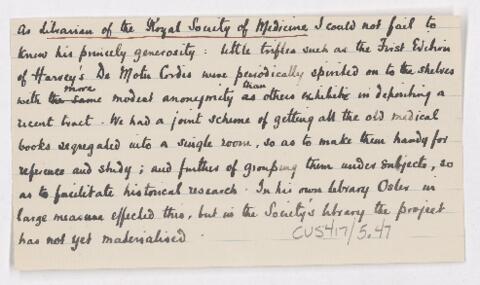 As Librarian of the Royal Society of Medicine I could not fail to
know his princely generosity: little trifles such as the First Edition
of Harvey's De Motu Cordis were periodically spirited on to the shelves
with the same more modest anonymity as than others exhibit in depositing a
recent tract. We had a joint scheme of getting all the old medical
books segregated into a single room, so as to make them handy for
reference and study; and further of grouping them under subjects, so
as to facilitate historical research. In his own library Osler in
large measure effected this, but in the Society's library the project
has not yet materialised.
CUS417/5.47